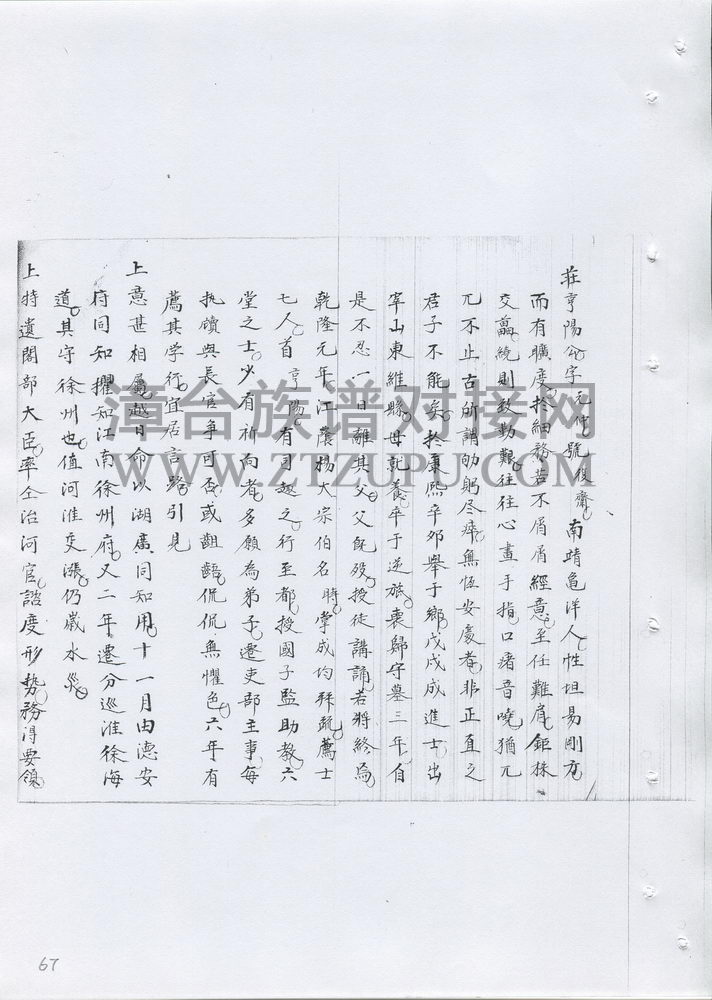 莊亨陽公字元仲號復齋南靖龜洋人性坦易剛方
而有曠度於細務若不屑屑經意至任難肩鉅株
交萬繞則致勤艱往往心畫手指口瘏音嘵猶兀
兀不止古所謂劬躬尽瘁無恆安處者非正直之
君子不能矣於康熙辛夘舉于鄉戊戌成進士出
宰山東維縣母就養卒于逆旅喪歸守墓三年自
是不忍一日離其父父既歿授徒講誦若將終焉
乾隆元年江蔭楊大宗伯名時掌成均拜疏薦士
七人首亨陽有司趣之行至都授國子監助教六
堂之士少有祈向者多願為弟子遷吏部主事每
执牘與長官爭可否或齟齬侃侃無懼色六年有
薦其学行宜居言路引見
上意甚相屬越日命以湖廣同知用十一月由德安
府同知擢知江南徐州府又二年遷分巡淮徐海
道其守徐州也值河淮交漲仍嵗水災
上特遣閣部大臣率仝治河官諮度形勢務得要領
漳台族谱对接网
WWW.ZTZUPU.COM
67